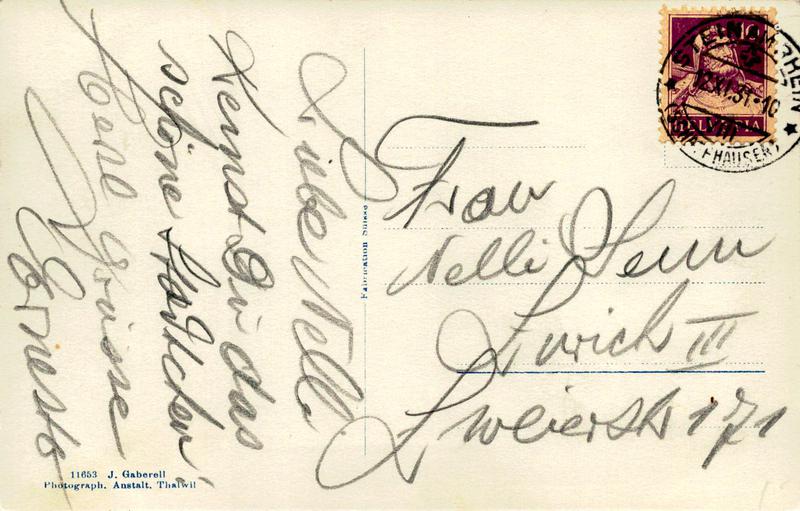 Liebe Nelli
Kennst Du das
schöne Städtchen?
Herzl Grüsse
Ernesto
Fabrication Suisse
Frau
Nelli Senn
Zürich III
Zweierstr 171
10
HELVETIA
STEIN a/RHEIN
12.XI.31-10
(SCHAFFHAUSEN)
11653 J. Gaberell
Photograph. Anstalt, Thalwil